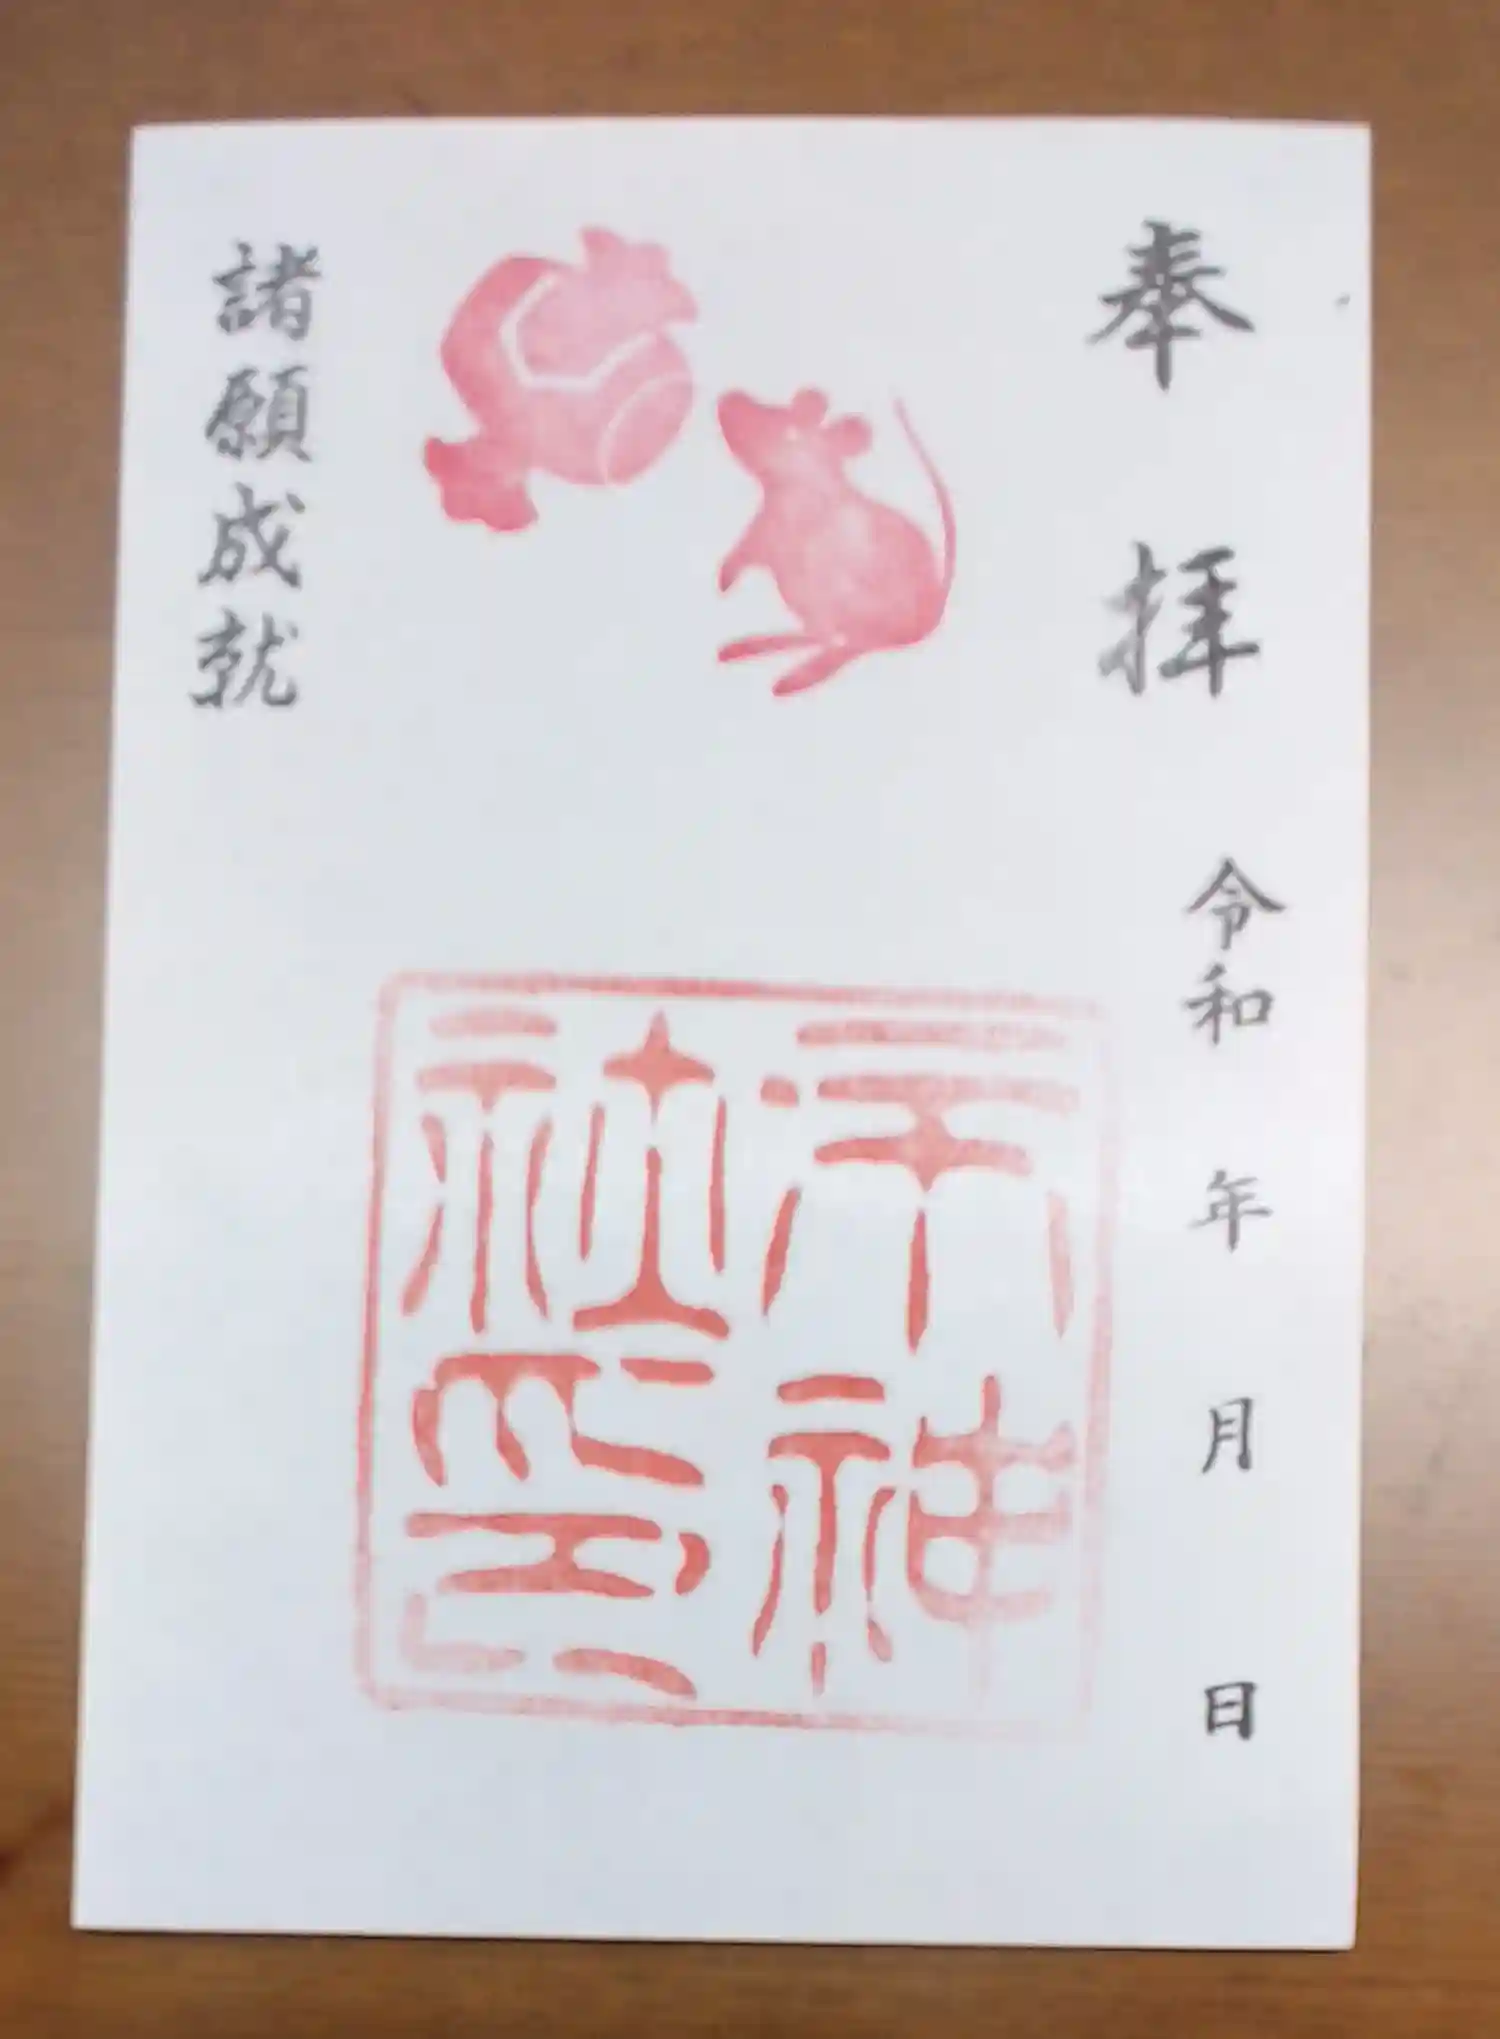 奉拝
令和 年 月 日
神社印
諸願成就